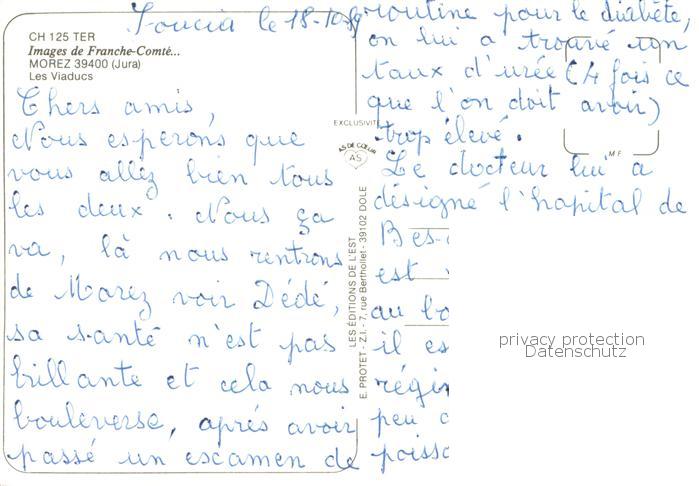 Foucia le 18-10-89
CH 125 TER
Images de Franche-Comté...
MOREZ 39400 (Jura)
Les Viaducs
Chers amis,
Nous esperons que
vous allez bien tous
les deux. Nous ça
va, là nous rentrons
de Marez voir Dédé,
sa santé n'est pas
brillante et cela nous
bouleverse, aprés avoir
passé un escamen de
routine pour le diabète,
on lui a trouvé un
taux d'urée (4 fois ce
que l'on doit avoir)
trop élevé.
Le docteur lui a
désigné l'hopital de
Bes
est
au bo
il es
régi
peu
poisso
EXCLUSIVITÉ
AS DE CŒUR
AS
MF
LES ÉDITIONS DE L'EST
E. PROTET - Z.I. 7, rue Berthollet - 39102 DOLE
privacy protection
Datenschutz